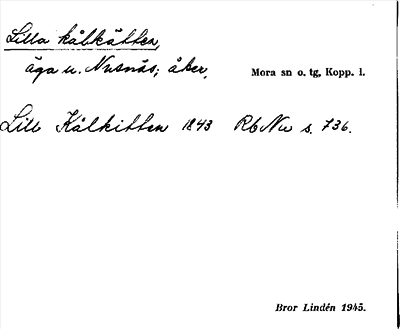 Lilla kålkätten,
äga u. Nusnäs; åker.
Mora sn o. tg, Kopp. l.
Lill Kålkitten 1843 Rb Nu s. 736.
Bror Lindén 1945.